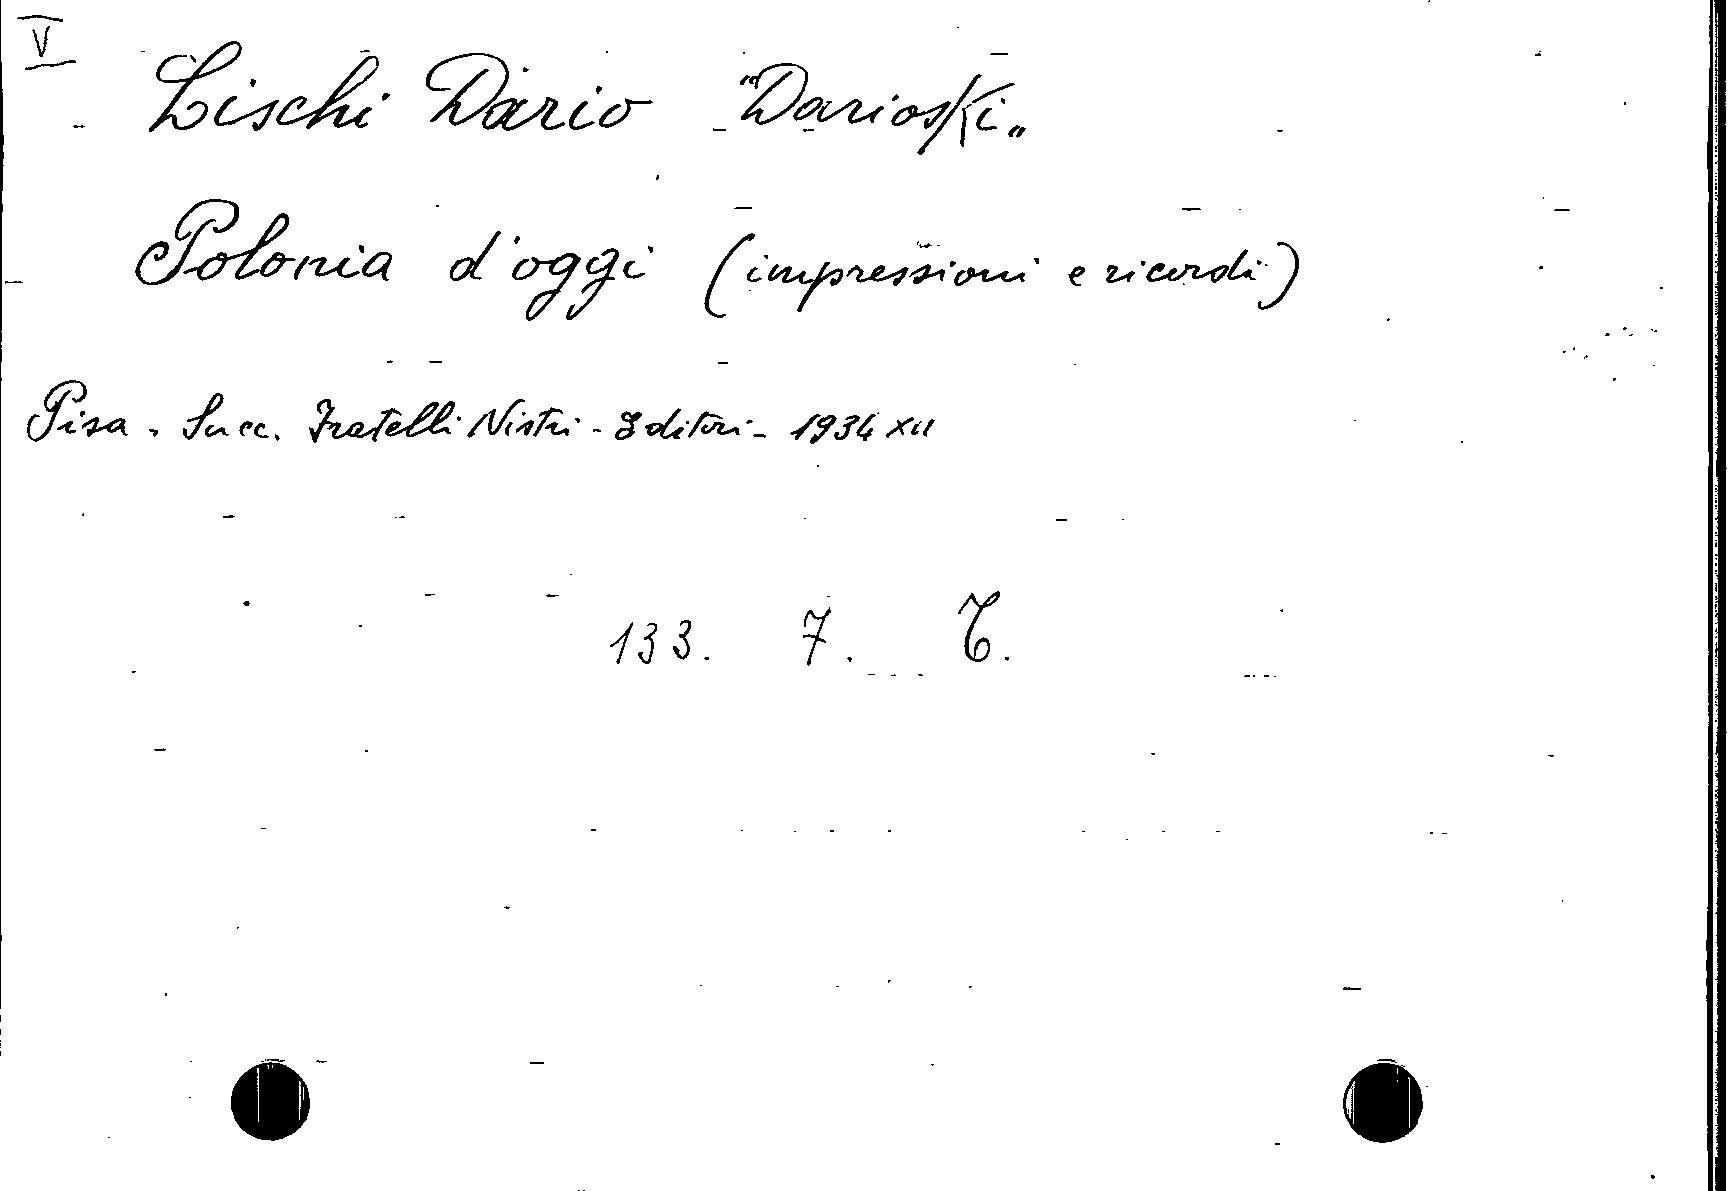 V
Lischi Dario "Darioski"
Polonia d'oggi (impressioni e ricordi)
Pisa. Succ. Fratelli Nistri - Editori - 1934 XII
133. 7. 6.